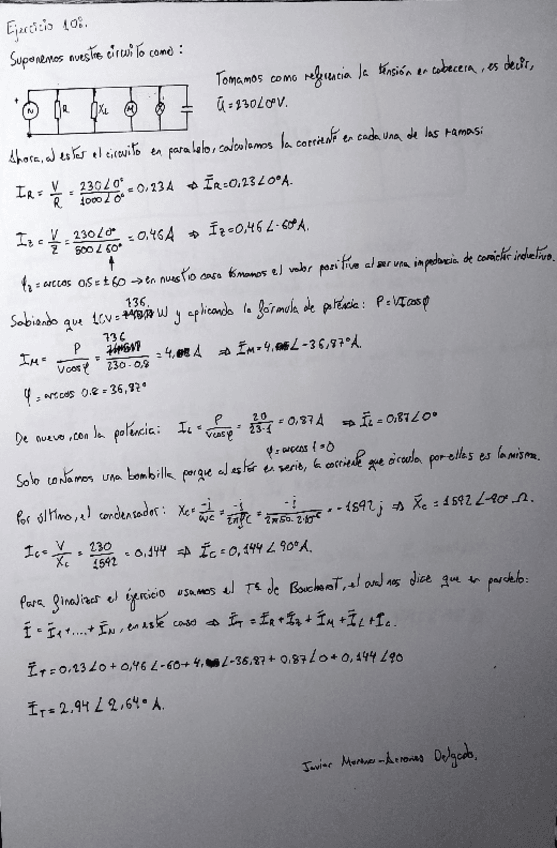 Ejercicio 10º.
Suponemos nuestro circuito como:
Tomamos como referencia la tensión en cabecera, es decir,
Ū = 230∠0º V.
+ N R XL M
Ahora, al estar el circuito en paralelo, calculamos la corriente en cada una de las ramas:
I_R = V/R = 230∠0º/1000∠0º = 0,23 A ⇒ Ī_R = 0,23∠0º A.
I_Z = V/Z = 230∠0º/500∠60º = 0,46 A ⇒ Ī_Z = 0,46∠-60º A.
φ_Z = arccos 0,5 = ±60 → en nuestro caso tomamos el valor positivo al ser una impedancia de carácter inductivo.
Sabiendo que 1CV = 736 W y aplicando la fórmula de potencia: P = VIcosφ
I_M = P/Vcosφ = 736/230·0,8 = 4, A ⇒ Ī_M = 4, ∠-36,87º A.
φ = arccos 0.8 = 36,87º
De nuevo, con la potencia: I_L = P/Vcosφ = 20/23·1 = 0,87 A ⇒ Ī_L = 0,87∠0º
φ = arccos 1 = 0
Solo contamos una bombilla porque al estar en serie, la corriente que circula por ellas es la misma.
Por último, el condensador: X_C = -j/ωC = -j/2πfC = -j/2π50·2·10⁻⁶ = -1592 j ⇒ X̄_C = 1592∠-90º Ω.
I_C = V/X_C = 230/1592 = 0,144 ⇒ Ī_C = 0,144∠90º A.
Para finalizar el ejercicio usamos el Tª de Boucherot, el cual nos dice que en paralelo:
Ī = Ī_1 + .... + Ī_N, en este caso ⇒ Ī_T = Ī_R + Ī_Z + Ī_M + Ī_L + Ī_C.
Ī_T = 0,23∠0 + 0,46∠-60 + 4, ∠-36,87 + 0,87∠0 + 0,144∠90
Ī_T = 2,94∠2,64º A.
Javier Moreno- Delgado.